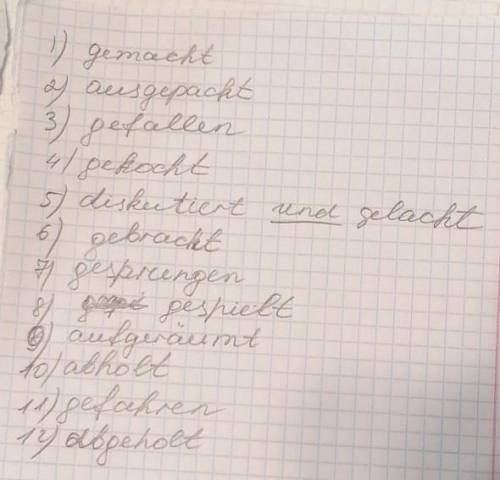 1) gemacht
2) ausgepackt
3) gefallen
4) gekocht
5) diskutiert und gelacht
6) gebracht
7) gesprungen
8) gespielt
9) aufgeräumt
10) abholt
11) gefahren
12) abgeholt